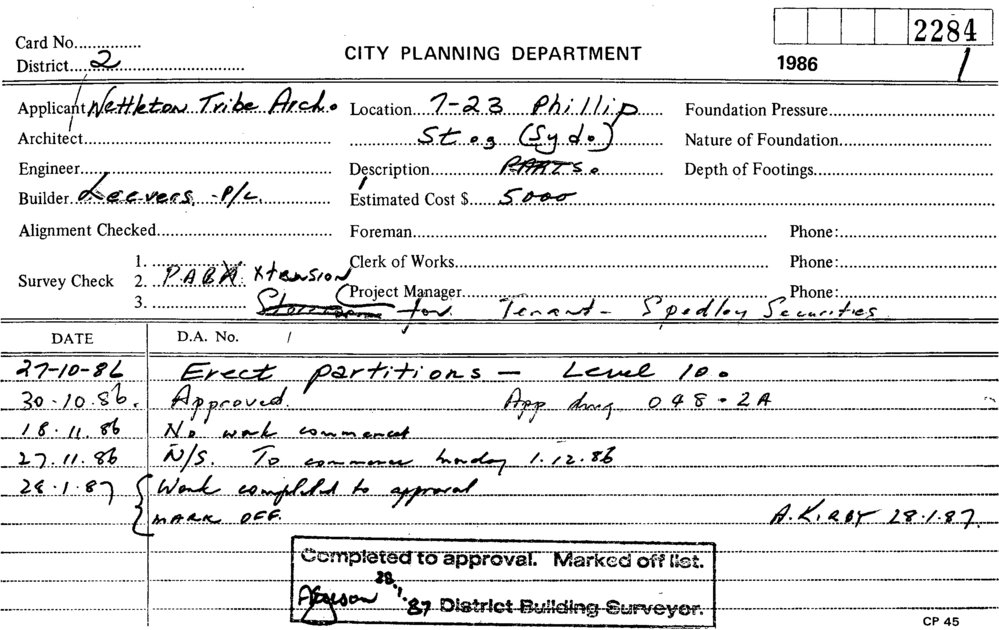 Card No............... 2284
District....2............................ CITY PLANNING DEPARTMENT 1986 1
Applicant Nettleton Tribe Arch. Location....7-23 Phillip Foundation Pressure
Architect St.. (Syd.) Nature of Foundation
Engineer Description PARTS. Depth of Footings
Builder Leevers P/L. Estimated Cost $ 5000
Alignment Checked Foreman Phone:
1. Clerk of Works Phone:
Survey Check 2. P.A.B.X Xtension
3. Project Manager Phone:
for Tenant - Spedley Securities
DATE D.A. No. /
27-10-86 Erect partitions - Level 10.
30.10.86. Approved. App dwg 048.2A
18.11.86 No work commenced
27.11.86 N/S. To commence Monday 1.12.86
28.1.87 Work completed to approval
MARK OFF. A. KIRBY 28.1.87.
Completed to approval. Marked off list.
28.1.87 District Building Surveyor.
CP 45